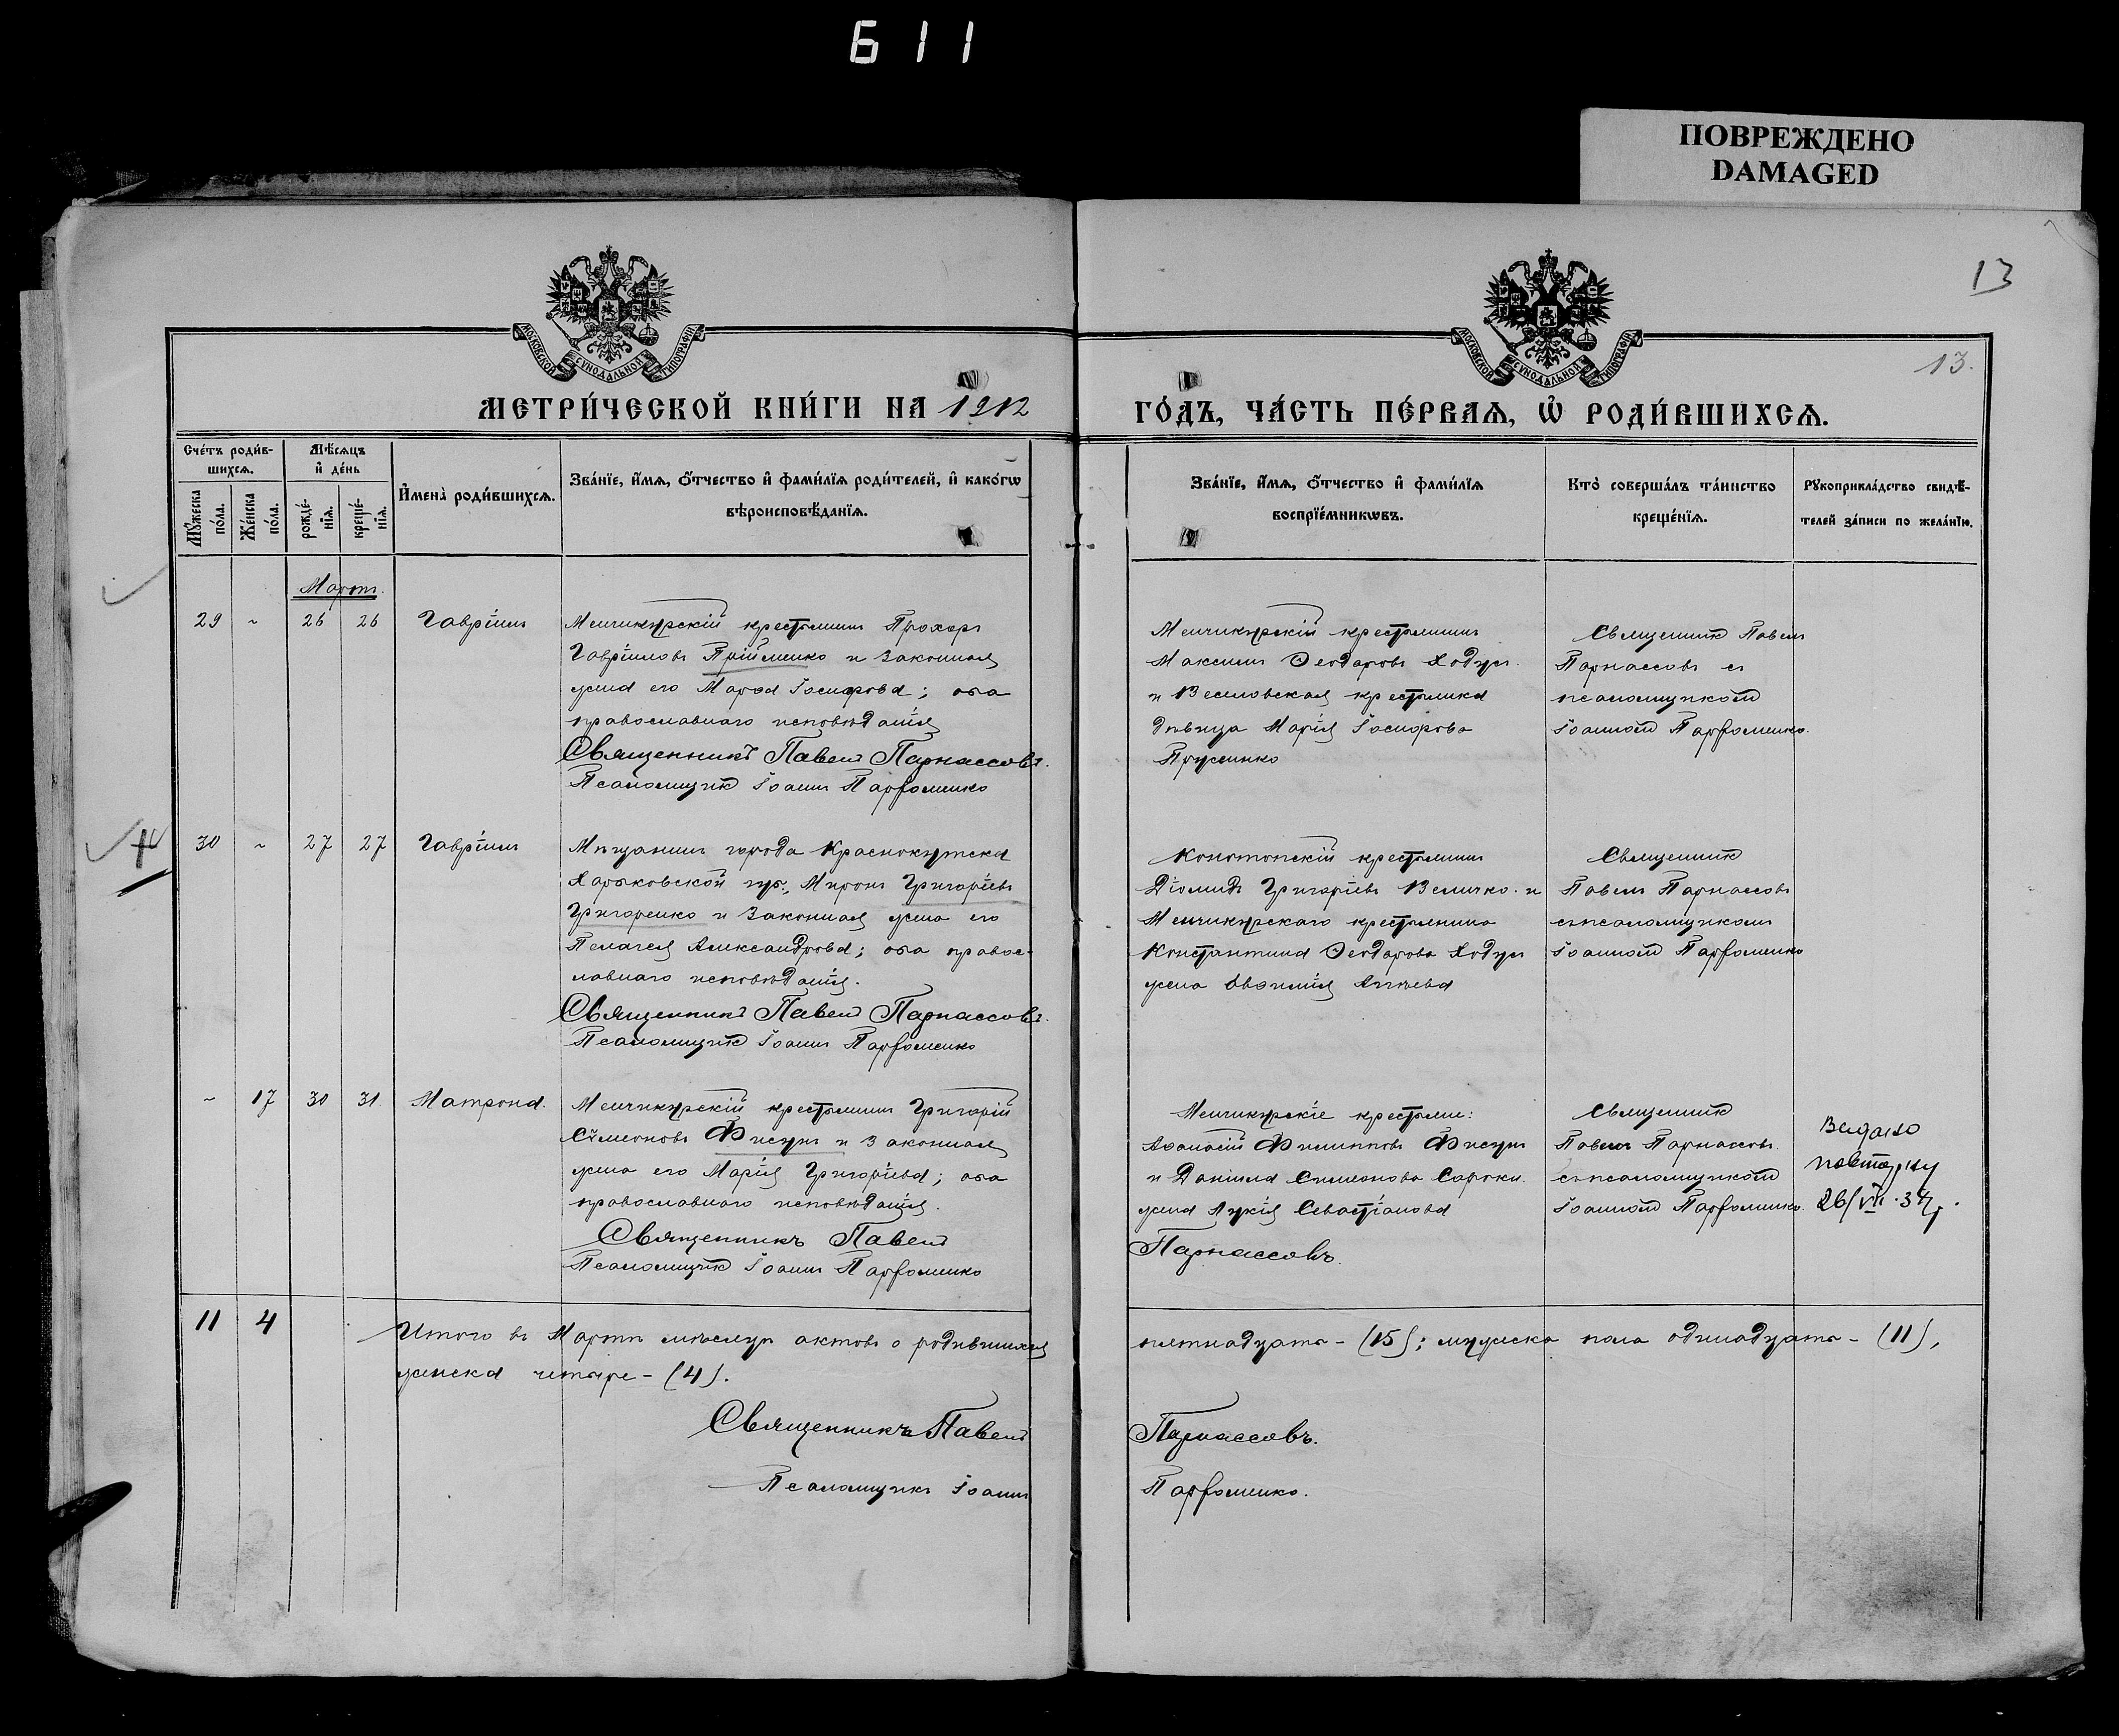 611
ПОВРЕЖДЕНО
DAMAGED
13
13.
МОСКОВСКОЙ СѴНОДАЛЬНОЙ ТИПОГРАФІИ
МОСКОВСКОЙ СѴНОДАЛЬНОЙ ТИПОГРАФІИ
МЕТРИ́ЧЕСКОЙ КНИ́ГИ НА 1912
ГО́ДЪ, ЧА́СТЬ ПЕ́РВАѦ, Ѡ҆ РОДИ́ВШИХСѦ.
Сче́тъ роди́в-
шихсѧ.
Мѣ́сѧцъ
и҆ де́нь
Мꙋ́жеска
по́ла.
Же́нска
по́ла.
рожде́-
нїѧ.
креще́-
нїѧ.
И҆мена̀ роди́вшихсѧ.
Зва́нїе, и҆́мѧ, ѻ҆́тчество и҆ фами́лїѧ роди́телей, и҆ како́гѡ
вѣроисповѣ́данїѧ.
Зва́нїе, и҆́мѧ, ѻ҆́тчество и҆ фами́лїѧ
воспрїе́мникѡвъ.
Кто̀ соверша́лъ та́инство
креще́нїѧ.
Рꙋкоприкла́дство свидѣ́-
телей за́писи по жела́нїю.
Мартъ.
29 ~ 26 26 Гавріилъ
Менчикурскій крестьянинъ Прохоръ
Гавріиловъ Прійменко и законная
жена его Марѳа Іосифова; оба
православнаго исповѣданія
Священникъ Павелъ Парнассовъ.
Псаломщикъ Іоаннъ Парфоменко
Менчикурскій крестьянинъ
Максимъ Ѳеодоровъ Ходунъ
и Веселовская крестьянка
дѣвица Марія Іосифова
Священникъ Павелъ
Парнассовъ съ
псаломщикомъ
Іоанномъ Парфоменко.
30 ~ 27 27 Гавріилъ
Мѣщанинъ города Краснокутска
Харьковской губ., Миронъ Григоріевъ
Григоренко и законная жена его
Пелагея Александрова; оба правос-
лавнаго исповѣданія.
Священникъ Павелъ Парнассовъ.
Псаломщикъ Іоаннъ Парфоменко
Конотопскій крестьянинъ
Діомидъ Григоріевъ Величко и
Менчикурскаго крестьянина
Константина Ѳеодорова Ходунъ
жена Евѳимія
Священникъ
Павелъ Парнассовъ
съ псаломщикомъ
Іоанномъ Парфоменко
~ 17 30 31 Матрона.
Менчикурскій крестьянинъ Григорій
Сѵмеоновъ Фисунъ и законная
жена его Марія Григоріева; оба
православнаго исповѣданія.
Священникъ Павелъ
Псаломщикъ Іоаннъ Парфоменко
Менчикурскіе крестьяне:
Аѳанасій Филипповъ Фисунъ
и Даніила Симеонова Сороки
жена Лукія Севастіанова
Парнассовъ.
Священникъ
Павелъ Парнассовъ
съ псаломщикомъ
Іоанномъ Парфоменко.
Видано
повторку
26/VII. 34 г.
11 4
Итого въ Мартѣ мѣсяцѣ актовъ о родившихся
пятнадцать - (15); мужска пола одинадцать - (11),
женска четыре - (4).
Священникъ Павелъ
Парнассовъ.
Псаломщикъ Іоаннъ
Парфоменко.